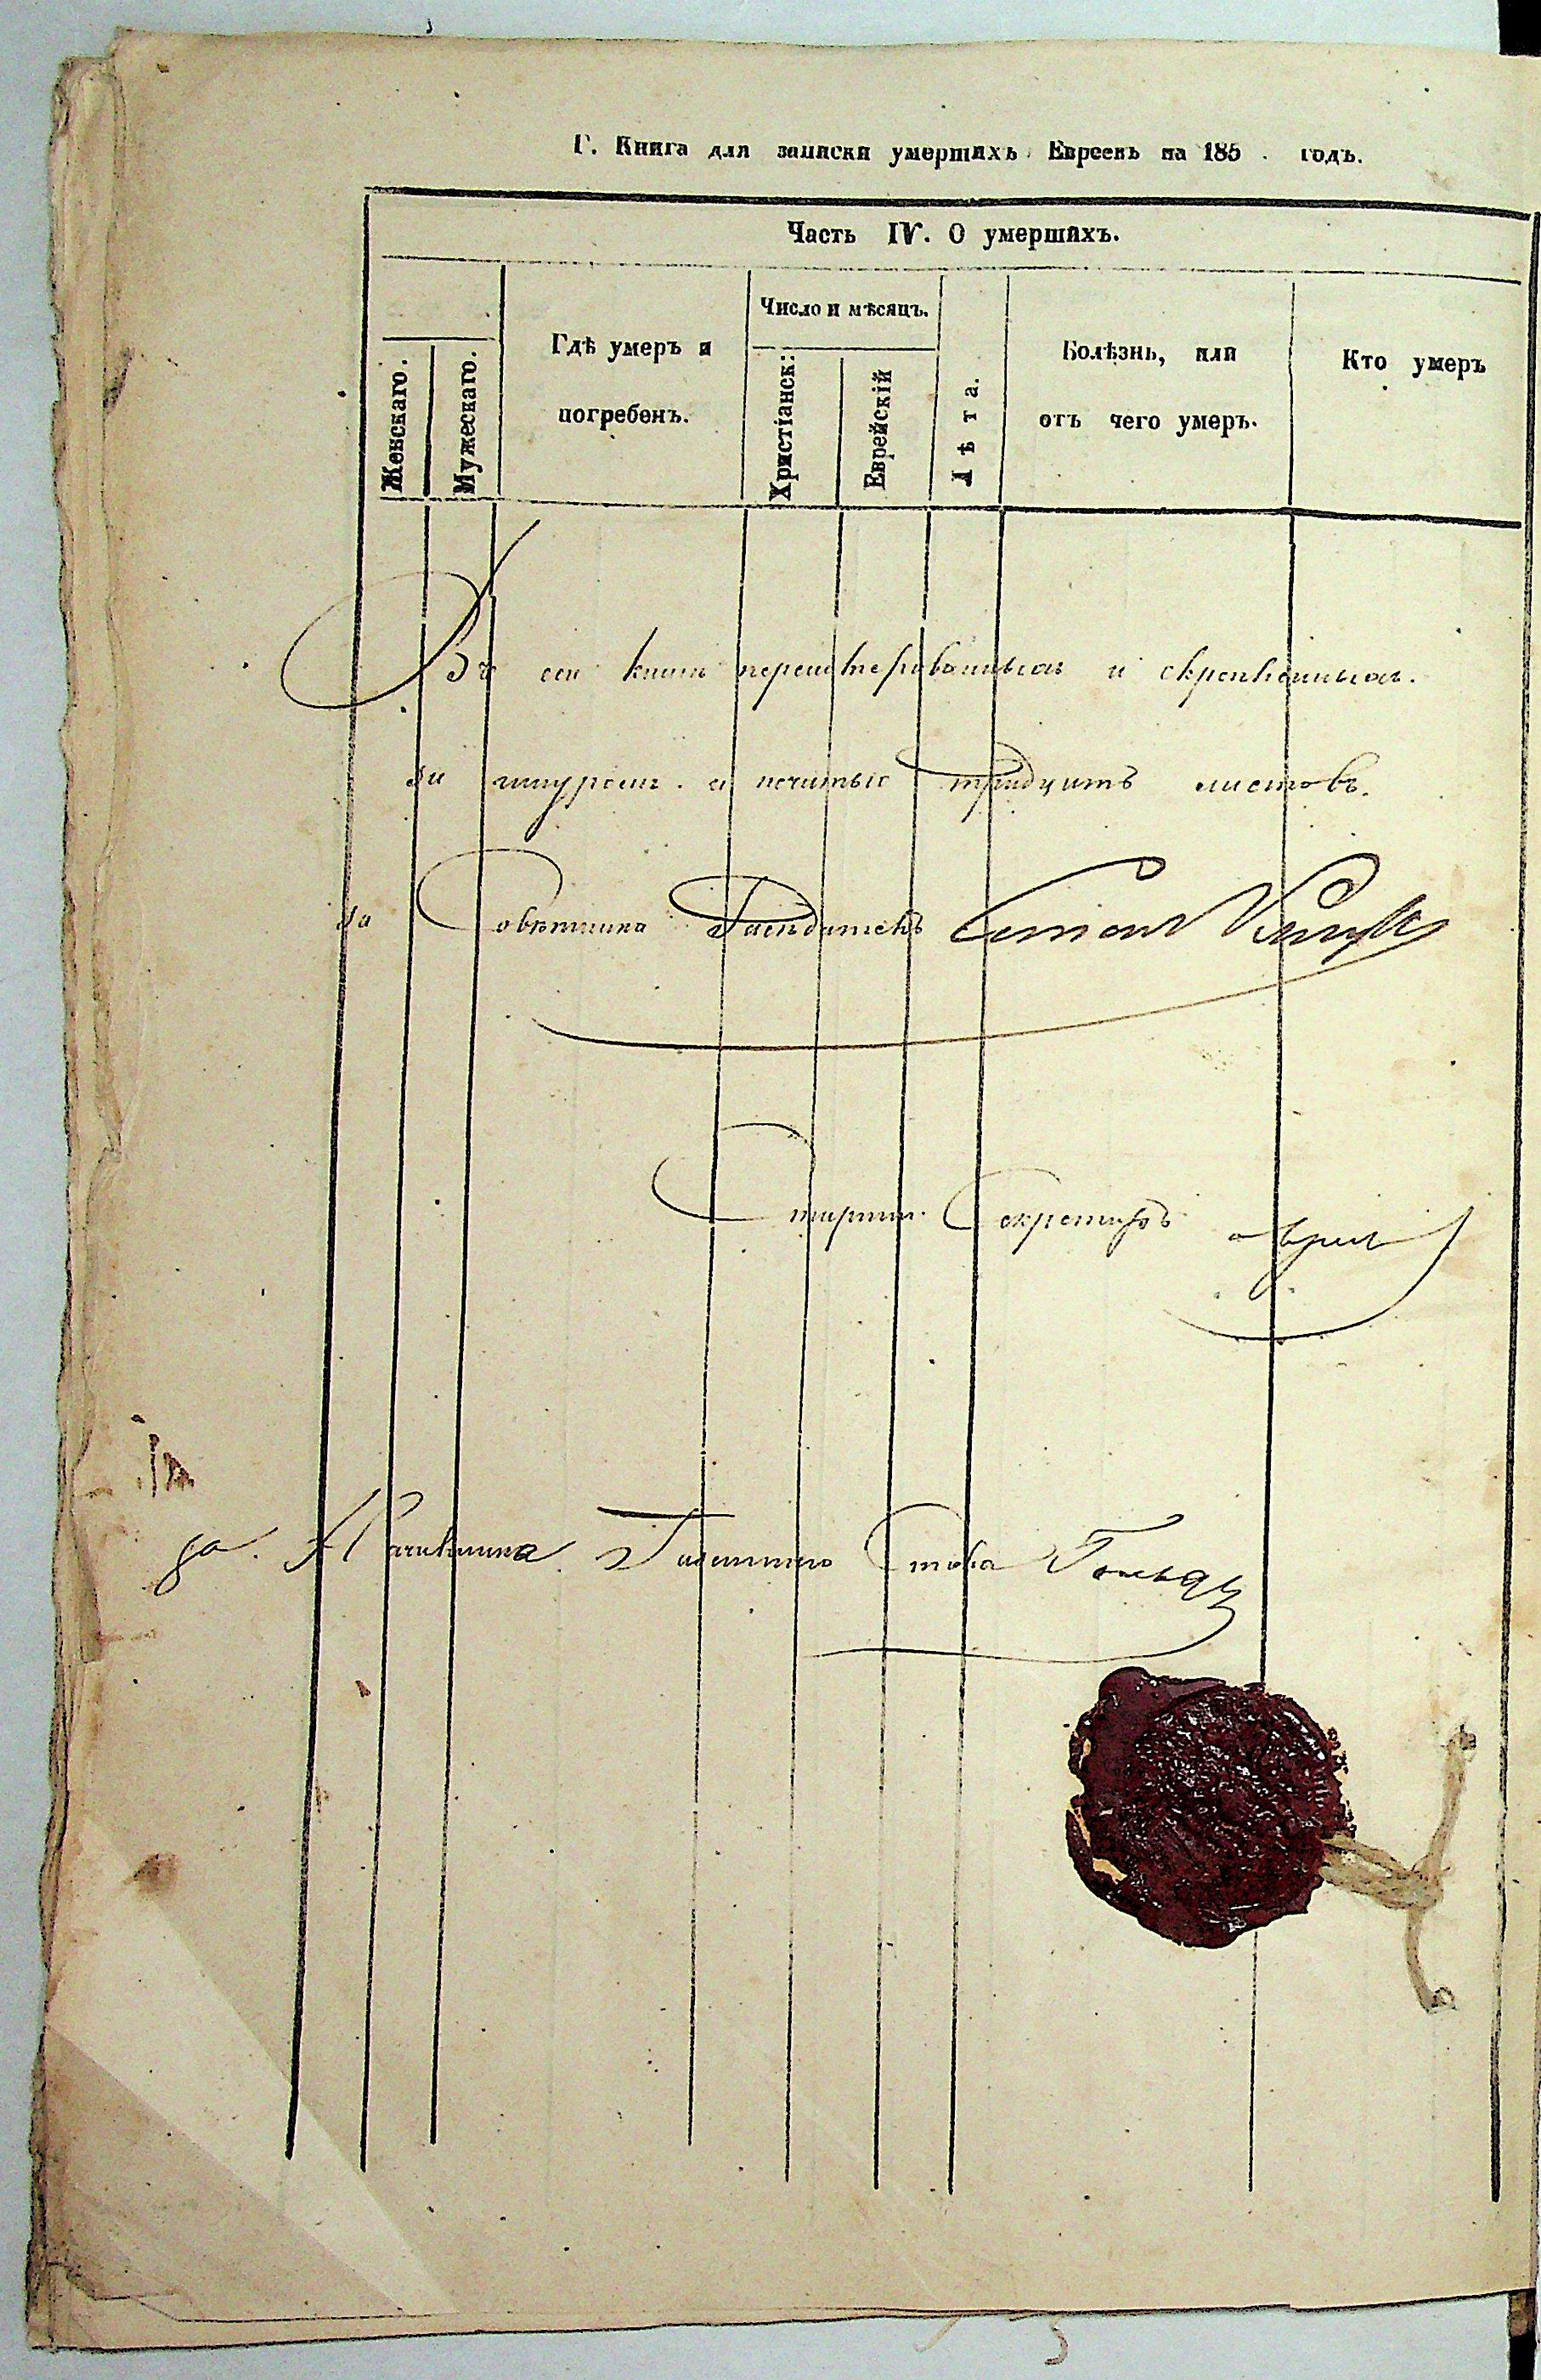 Г. Книга для записки умершихъ Евреевъ на 185 . годъ.
Часть IV. О умершихъ.
Женскаго.
Мужескаго.
Гдѣ умеръ и
погребенъ.
Число и мѣсяцъ.
Христіанск:
Еврейскій
Лѣта.
Болѣзнь, или
отъ чего умеръ.
Кто умеръ
Въ сей книгѣ перенумерованныхъ и скрепленныхъ
за шнуромъ и печатью тридцать листовъ.
За Совѣтника Засѣдатель
Секретарь
За Стола